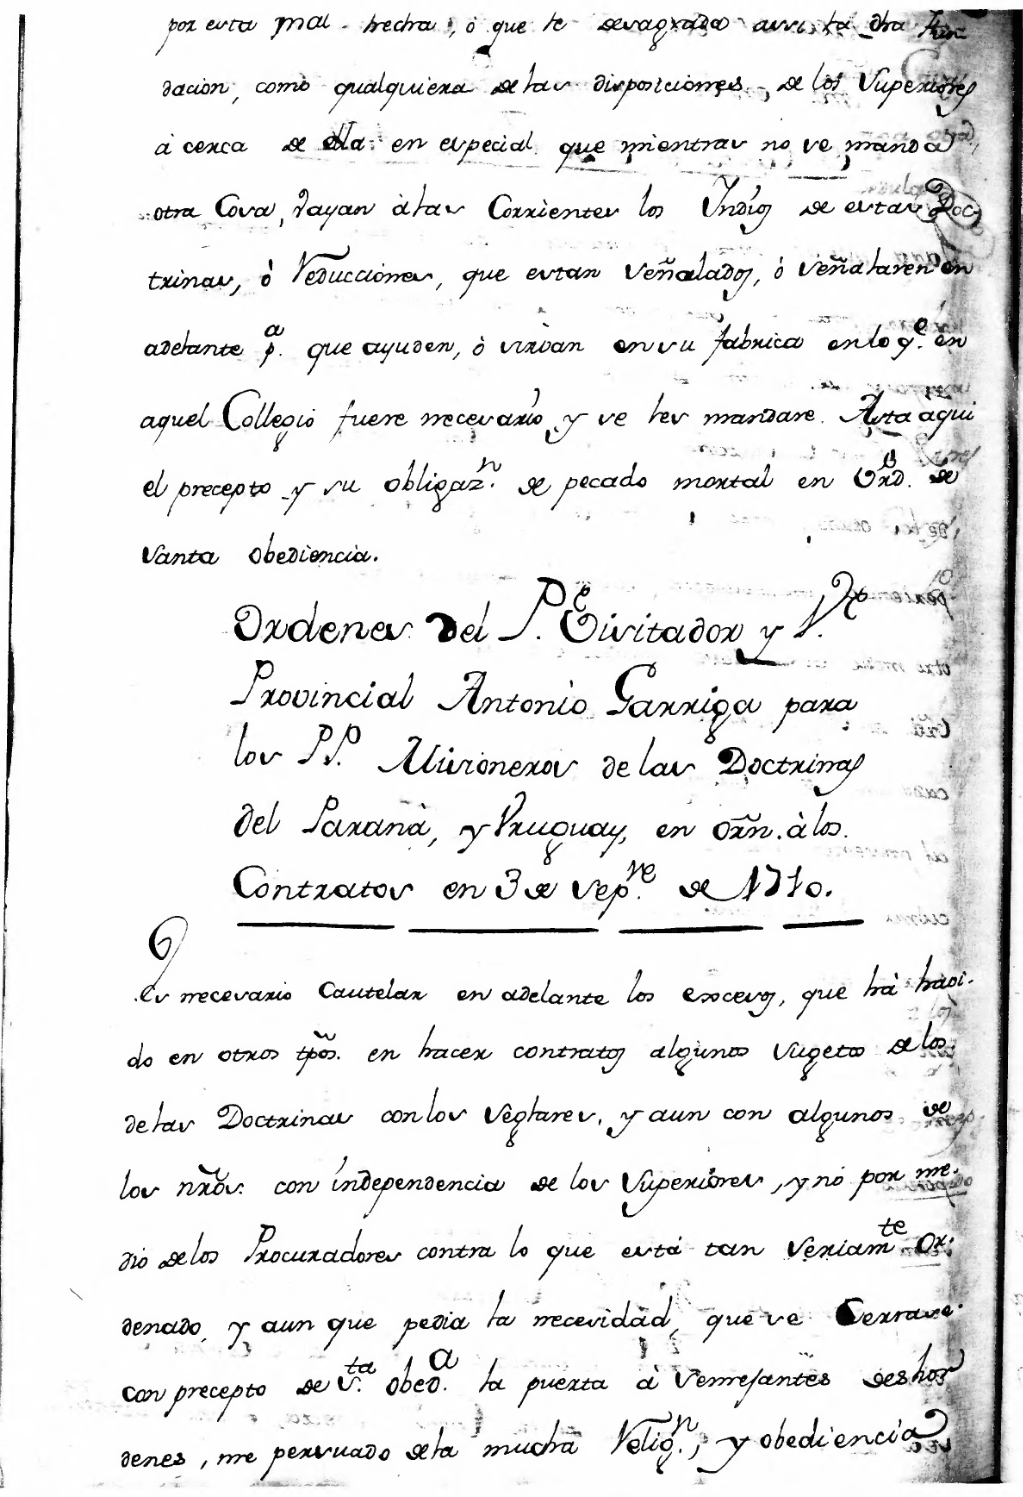 por esta mal hecha, ó que le desagrada assi la dha fun
dacion, como qualquiera de las disposiciones, de los Superiores
à cerca de ella en especial que mientras no se manda
otra Cosa, vayan à las Corrientes los Indios de estas Doc-
trinas, ò Reducciones, que estan señalados, ò señalaren en
adelante pa. que ayuden, ò sirvan en su fabrica en lo qe. en
aquel Collegio fuere necesario y se les mandare. Asta aqui
el precepto y su obligazn. de pecado mortal en Ord. de
santa obediencia.
Ordenes del P. Visitador y V.
Provincial Antonio Garriga para
los PP. Missioneros de las Doctrinas
del Paranà, y Uruguay, en orñ. à los
Contratos en 3 de Sepre. de 1710.
Es necesario Cautelar en adelante los excesos, que hà havi-
do en otros tpos. en hacer contratos algunos sugetos de los
de las Doctrinas con los seglares, y aun con algunos de
los nros. con independencia de los Superiores, y no por me-
dio de los Procuradores contra lo que està tan seriamte or-
denado, y aun que pedia la necesidad, que se Cerrase
con precepto de sta. obeda. la puerta à semejantes deshor
denes, me persuado de la mucha Relign., y obediencia